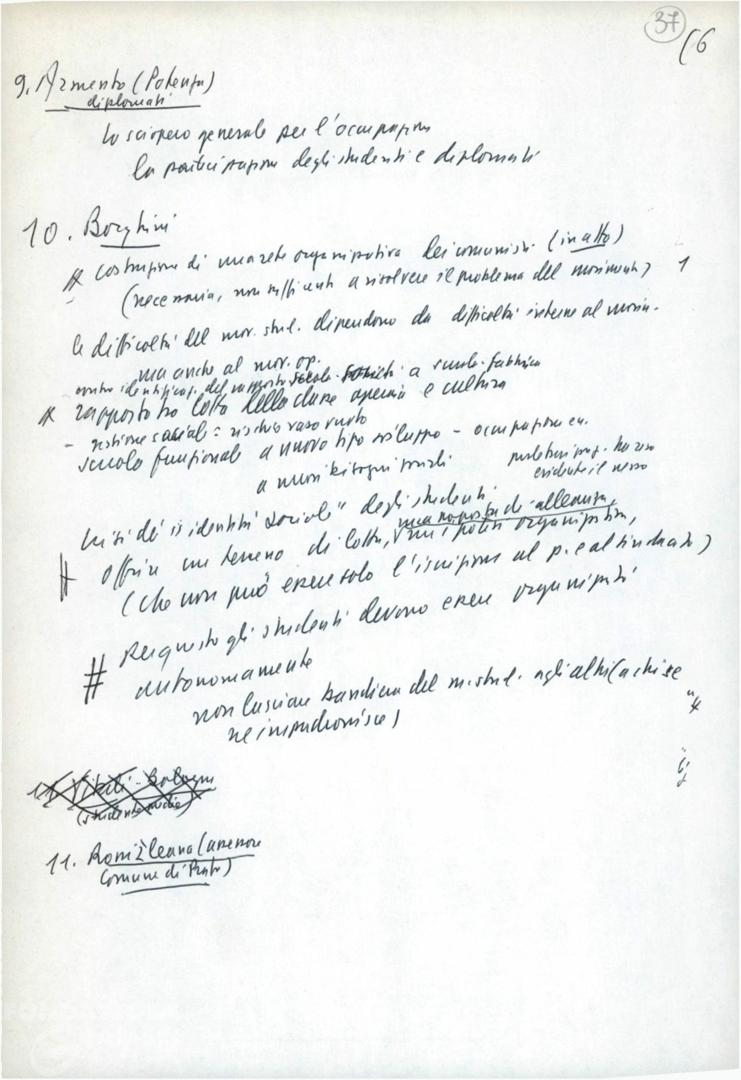 37
(6
9. Armento (Potenza)
diplomati
Lo sciopero generale per l'occupazione
la partecipazione degli studenti e diplomati
10. Borghini
# costruzione di una rete organizzativa dei comunisti (in alto)
(necessaria, non sufficiente a risolvere il problema del movimento) 1
le difficoltà del mov. stud. dipendono da difficoltà interne al movim.
ma anche al mov. op.
contro identificaz. del rapporto a scuola-fabbrica
# rapporto tra lotta della classe operaia e cultura
- gestione sociale = rischio vaso vuoto
scuola funzionale a nuovo tipo sviluppo - occupazione ecc.
a nuovi bisogni sociali
evidente il nesso
crisi di "identità sociale" degli studenti
una proposta di alleanza,
# offrire un terreno di lotta, organizzativa,
(che non può essere solo l'iscrizione al p. e al sindacato)
# per questo gli studenti devono essere organizzati
autonomamente
non lasciare bandiera del m. stud. agli altri (a chi se
ne impadronisce)
11. Vitali - Bologna
(studente medio)
11. (assessore
Comune di Prato)